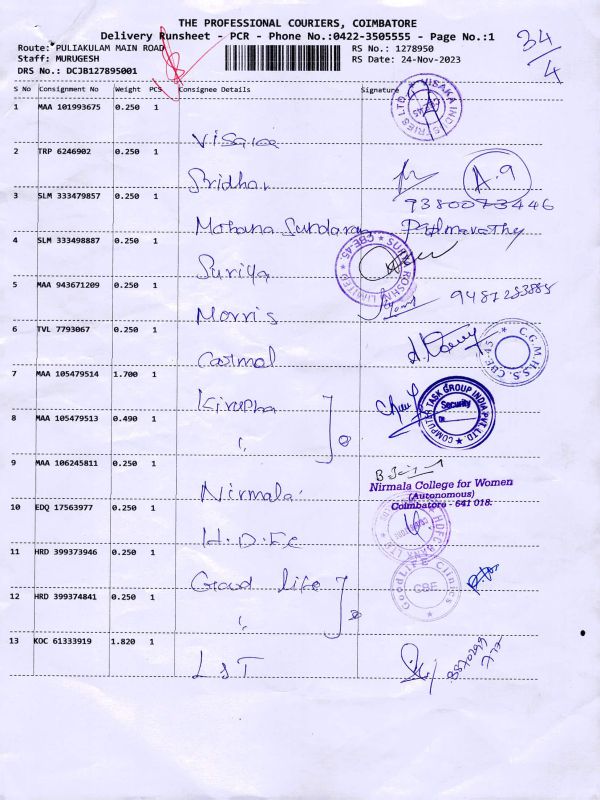 THE PROFESSIONAL COURIERS, COIMBATORE
Delivery Runsheet - PCR - Phone No.:0422-3505555 - Page No.:1
34/4
Route: PULIAKULAM MAIN ROAD RS No.: 1278950
Staff: MURUGESH RS Date: 24-Nov-2023
DRS No.: DCJB127895001
S No Consignment No Weight PCS Consignee Details Signature
1 MAA 101993675 0.250 1
VISAKA INDUSTRIES LTD. CBE-45
Visaka
2 TRP 6246902 0.250 1
Sridhar A.9
3 SLM 333479857 0.250 1
9380073446
Mohana Sundaram Padmavathy
4 SLM 333498887 0.250 1
SURYA ROSHNI LIMITED CBE-45.
Suriya
5 MAA 943671209 0.250 1
9487283885
Morris
6 TVL 7793067 0.250 1
C.G.M.H.S.S. CBE-45
Carmel
7 MAA 105479514 1.700 1
Kirupha
COMPUTER TASK GROUP INDIA PVT. LTD.
Security
8 MAA 105479513 0.490 1
"
9 MAA 106245811 0.250 1
Nirmala
Nirmala College for Women
(Autonomous)
Coimbatore - 641 018.
10 EDQ 17563977 0.250 1
HDFC BANK LTD
H.D.F.C
11 HRD 399373946 0.250 1
Good life
GoodLIFE Clinics
CBE
12 HRD 399374841 0.250 1
"
13 KOC 61333919 1.820 1
L&T